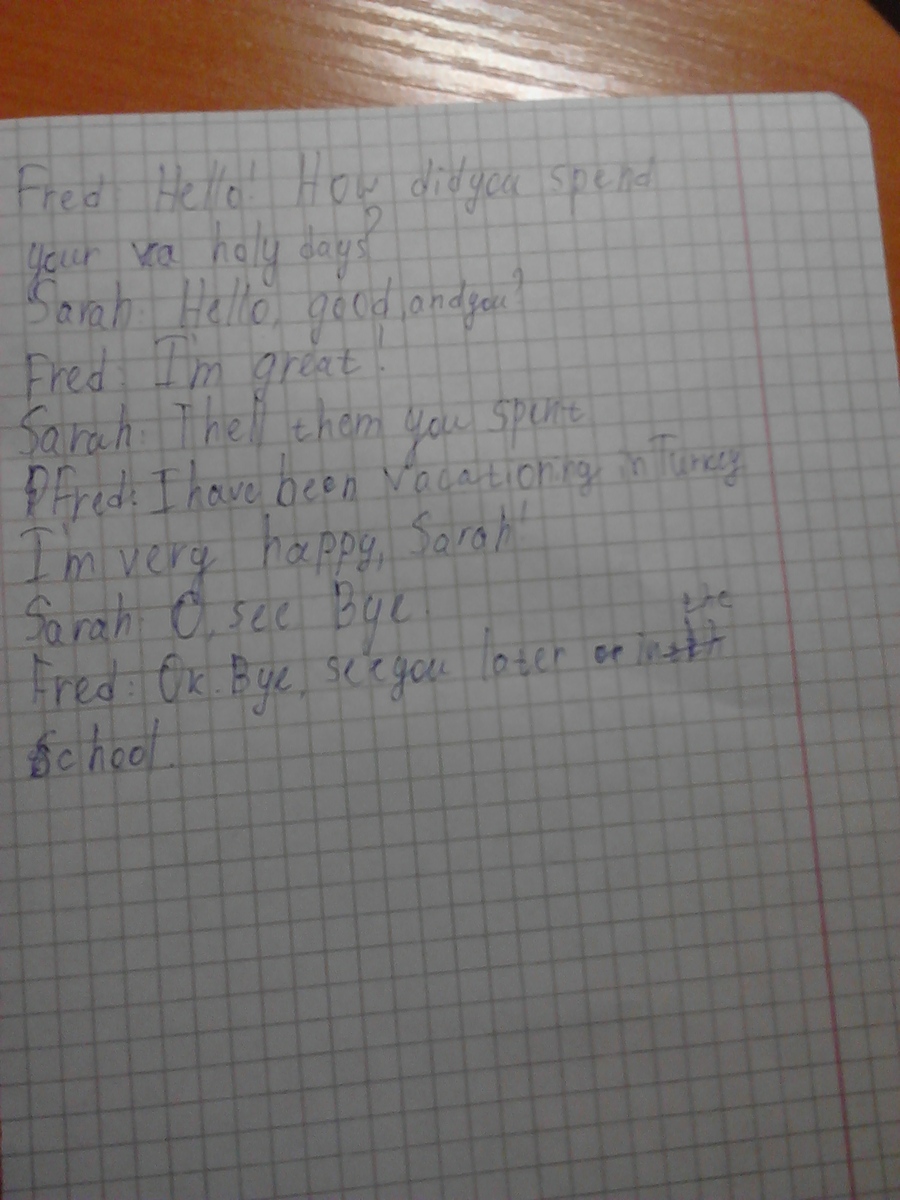 Fred Hello! How did you spend
your va holy days?
Sarah: Hello, good, and you?
Fred: I'm great!
Sarah: Thell them you spent
Fred: I have been vacationing in Turkey
I'm very happy, Sarah!
Sarah: O, see Bye.
the
Fred: Ok. Bye, see you later or in
School.